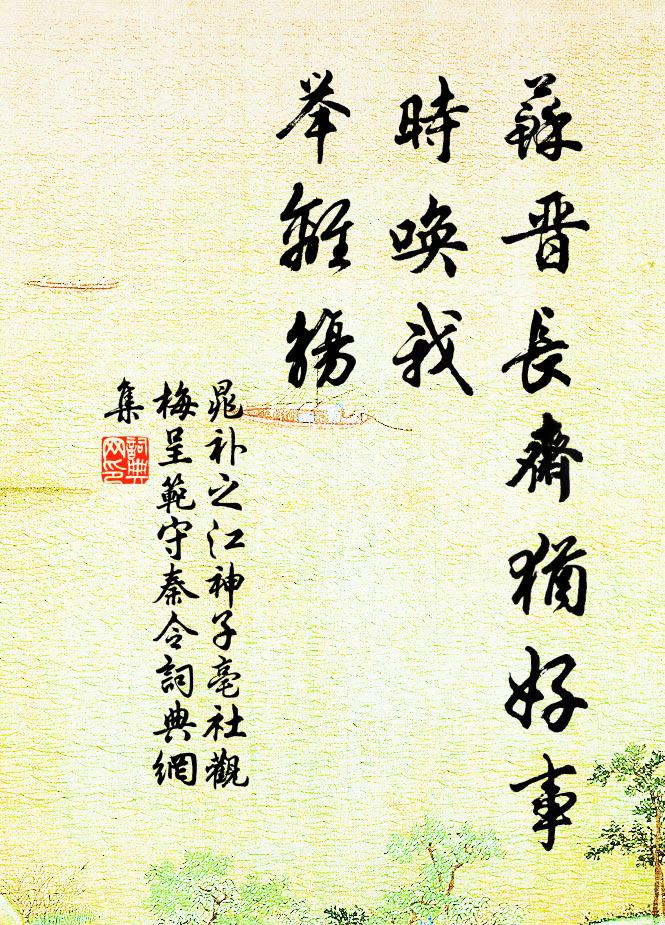 蘇晋長齋猶好事
時喚我
举離觴
晁补之江神子亳社觀
梅呈範守秦令詞典網
集
詞典
网印